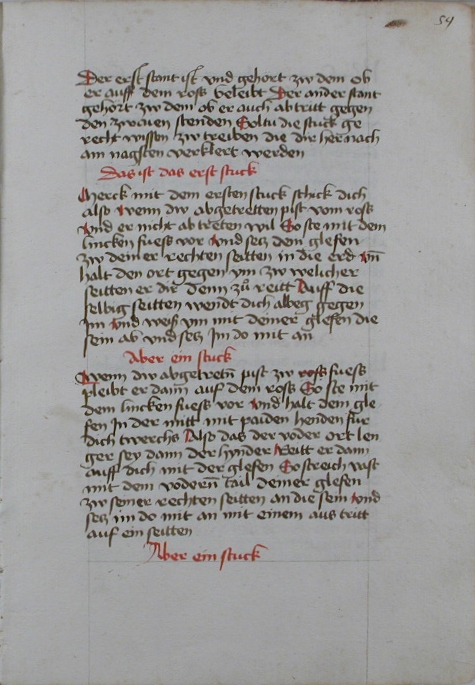 54
Der erst stant ist vnd gehort zw dem ob
er auff dem ross beleibt Der ander stant
gehört zw dem ob er auch ab tritt gegen
den zwaien stenden Soltu die stuck ge
recht wissen zw treiben die dir her nach
am nagsten verklert werden
Das ist das erst stuck
Merck mit dem ersten stuck schick dich
also Wenn dw abgetretten pist vom ross
Vnd er nicht ab treten wil So ste mit dem
lincken fuess vor Vnd secz dein glefen
zw deiner rechten seitten in die erd Vn̄
halt den ort gegen ym zw welicher
seitten er dir denn zů reitt Auff die
selbig seitten wendt dich albeg gegen
Im Vnd weiß ym mit deiner glefen die
sein ab vnd secz Im do mit an
Aber ein stuck
Wenn dw abgetretn̄ pist zw ross fuess
pleibt er dann auf dem ross So ste mit
dem lincken fuess vor Vnd halt dein gle
fen In der mitt mit paiden henden für
dich twerchs Also das der voder ort len
ger sey dann der hynder Reitt er dann
auff dich mit der glefen So streich vast
mit dem vodern̄ tail deiner glefen
zw seiner rechten seitten an die sein Vnd
secz im do mit an mit einem aus tritt
auf ein seitten
Aber ein stuck